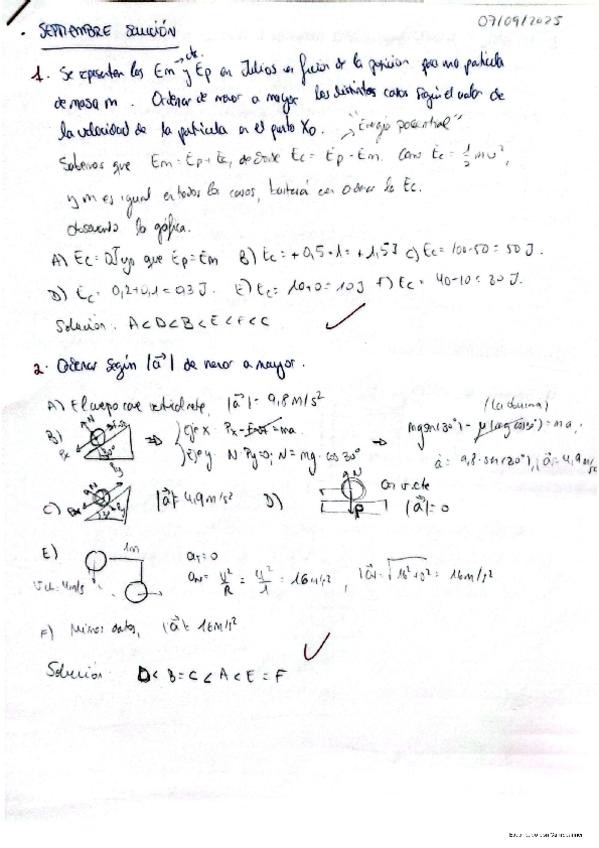 07/09/2025
SEPTIEMBRE SOLUCIÓN
1. Se representan las Em → cte. y Ep en Julios en función de la posición para una partícula
de masa m. Ordenar de menor a mayor los distintos casos según el valor de
la velocidad de la partícula en el punto Xo. → "Energía potencial"
Sabemos que Em = Ep + Ec, donde Ec = Ep - Em. Como Ec = 1/2 mv²,
y m es igual en todos los casos, bastará con ordenar la Ec.
observando la gráfica.
A) Ec = 0J ya que Ep = Em B) Ec = +0,5+1 = +1,5J C) Ec = 100-50 = 50 J.
D) Ec = 0,2+0,1 = 0,3 J. E) Ec = 10+0 = 10J F) Ec = 40-10 = 30 J.
Solución: A < D < B < E < F < C
2. Ordenar según |a| de menor a mayor.
A) El cuerpo cae |a| = 9,8 m/s²
B) N Px 30° Py ⇒ { Eje x: Px - = ma. → mg sen(30°) - μ(mg cos30°) = ma,
Eje y: N - Py = 0; N = mg · cos 30° a = 9,8 · sen(30°), |a| = 4,9 m/s²
C) |a| = 4,9 m/s² D) N P con v cte |a| = 0
E) 1m aT = 0
v = 4m/s aN = v²/R = 4²/1 = 16 m/s², |a| = √16²+0² = 16 m/s²
F) Mismos datos, |a| = 16 m/s²
Solución: D < B = C < A < E = F